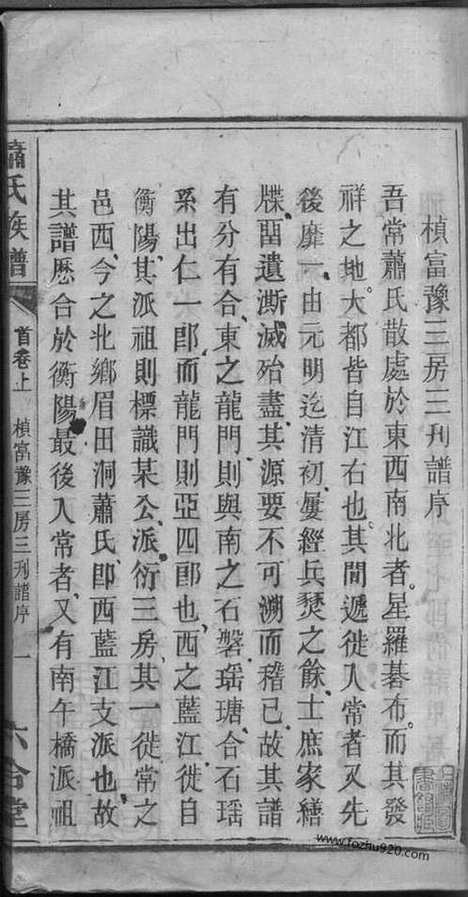 楨富豫三房三刊譜序
吾常蕭氏散處於東西南北者星羅棊布而其發
祥之地大都皆自江右也其間遞徙入常者又先
後靡一由元明迄清初屢經兵燹之餘士庶家繕
牒畱遺澌滅殆盡其源要不可溯而稽已故其譜
有分有合東之龍門則與南之石磐瑶瑭合石瑶
系出仁一郎而龍門則亞四郎也西之藍江徙自
衡陽其派祖則標識某公派衍三房其一徙常之
邑西今之北鄉眉田洞蕭氏卽西藍江支派也故
其譜歷合於衡陽最後入常者又有南午橋派祖
蕭氏族譜
首卷上
楨富豫三房三刊譜序
一
六合堂
www.fozhu920.com